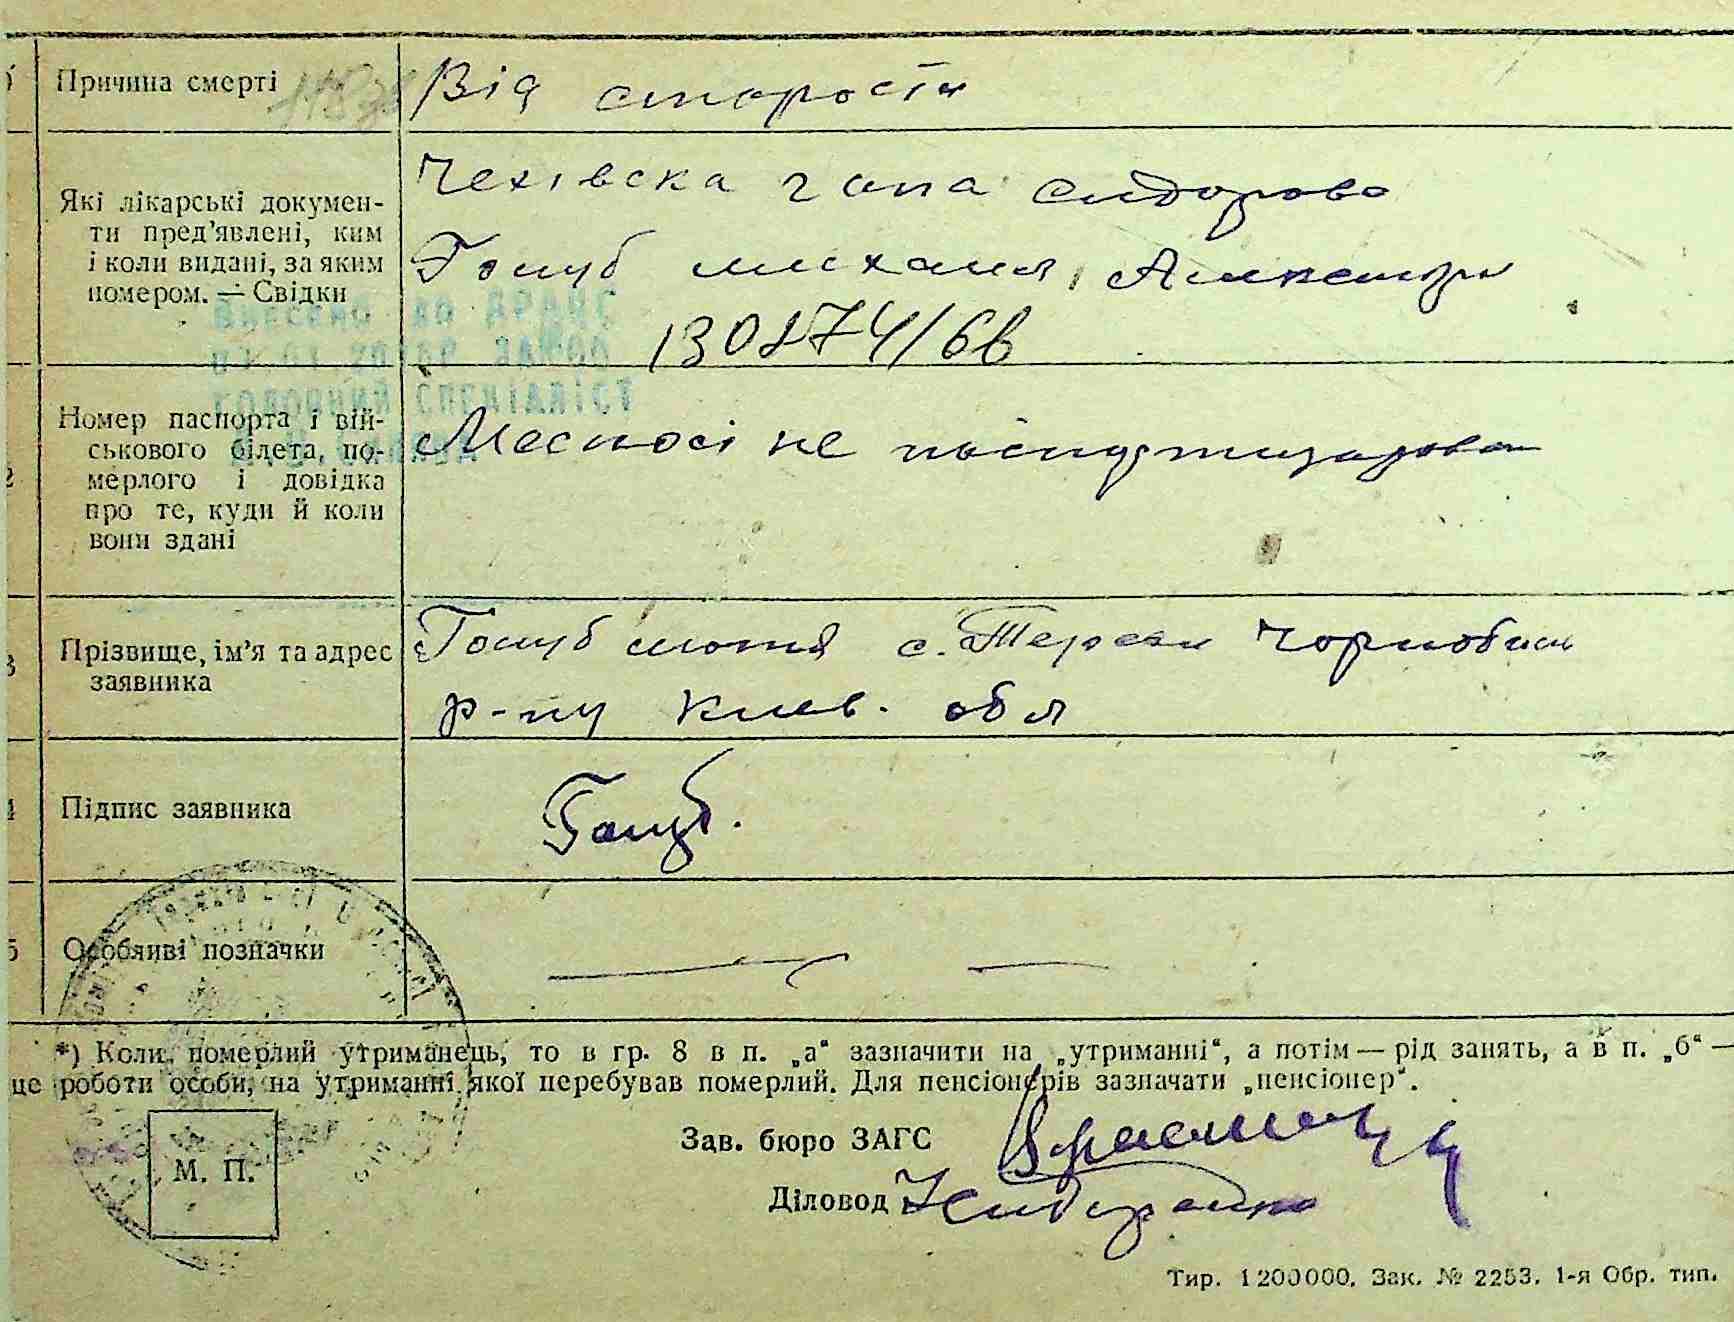 Причина смерті Від старости
Які лікарські докумен-
ти пред'явлені, ким
і коли видані, за яким
номером. — Свідки
Чехівска гапа Сидорова
Голуб михаил
Номер паспорта і вій-
ськового білета, по-
мерлого і довідка
про те, куди й коли
вони здані
не
Прізвище, ім'я та адрес
заявника
Голуб мотя с. Чорнобил
р-ну Киев. обл
Підпис заявника Голуб.
5 Особливі позначки
*) Коли померлий утриманець, то в гр. 8 в п. „а“ зазначити на „утриманні“, а потім — рід занять, а в п. „б“ —
це роботи особи, на утриманні якої перебував померлий. Для пенсіонерів зазначати „пенсіонер“.
Зав. бюро ЗАГС
М. П.
Діловод
Тир. 1200000. Зак. № 2253. 1-я Обр. тип.